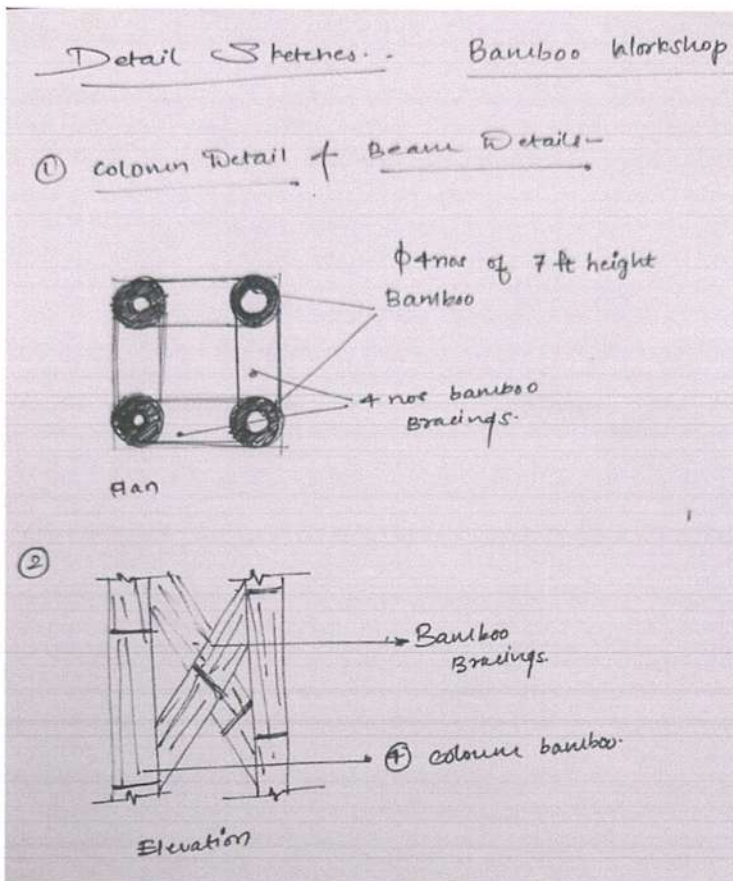 Detail Sketches.. Bamboo Workshop
① Column Detail & Beam Details
ϕ 4 nos of 7 ft height
Bamboo
4 nos bamboo
Bracings.
Plan
②
Bamboo
Bracings.
④ column bamboo.
Elevation